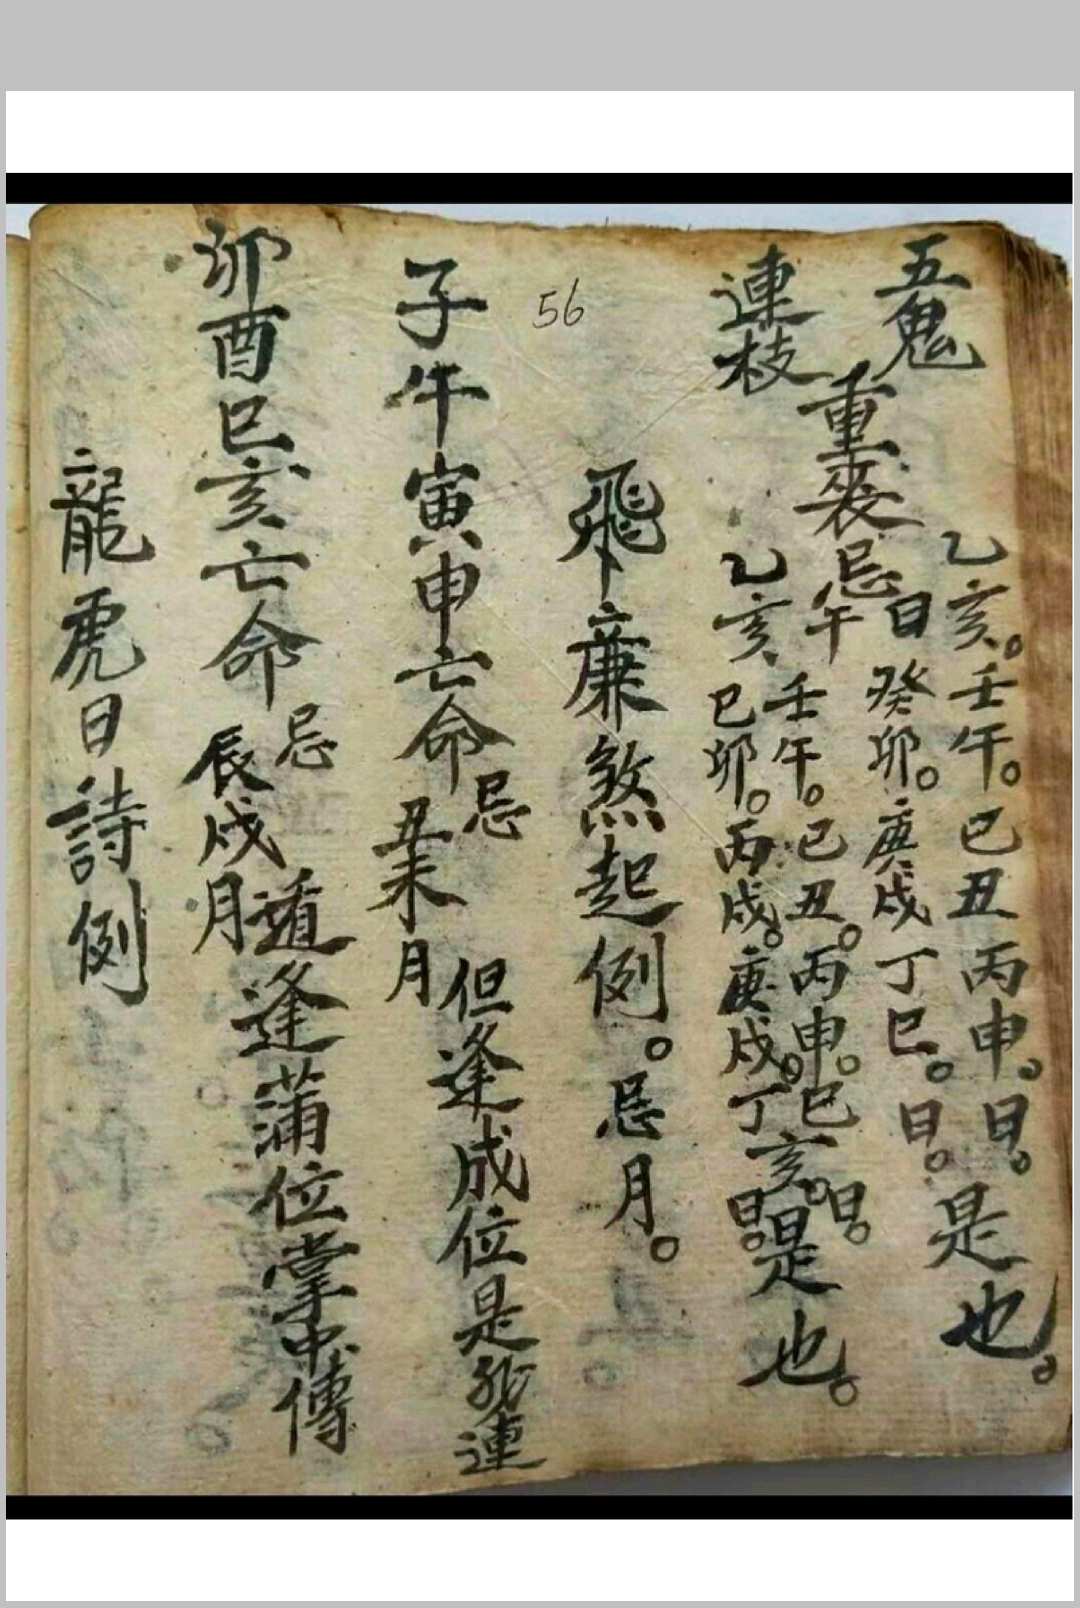 五鬼
乙亥。壬午。巳丑丙申。日。
日癸卯。庚戌丁巳。日。
是也。
重喪忌
連枝
午壬午。巳丑。丙申。巳亥。日。
乙亥巳卯。丙戌。庚戌。丁日。
是也。
飛廉煞起例。忌月。
56
子午寅申亡命忌丑未月但逢成位是飛連
卯酉巳亥亡命忌辰戌月遁逢蒲位掌中傳
龍虎日詩例